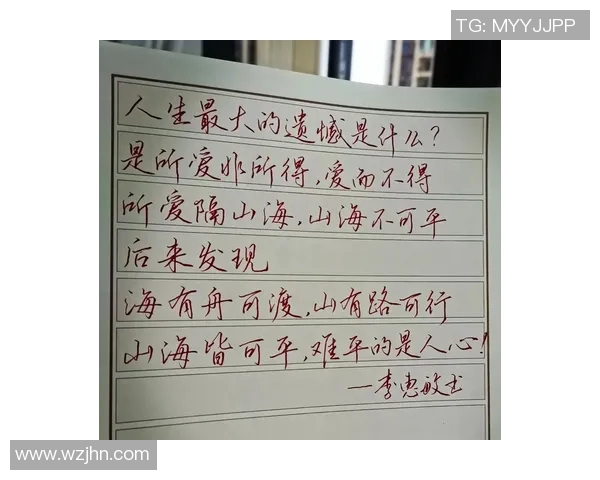 TG: MYYJJPP
人生最大的遗憾是什么?
是所爱非所得,爱而不得
所爱隔山海,山海不可平
后来发现
海有舟可渡,山有路可行
山海皆可平,难平的是人心!
—李惠敏书
www.wzjhn.com